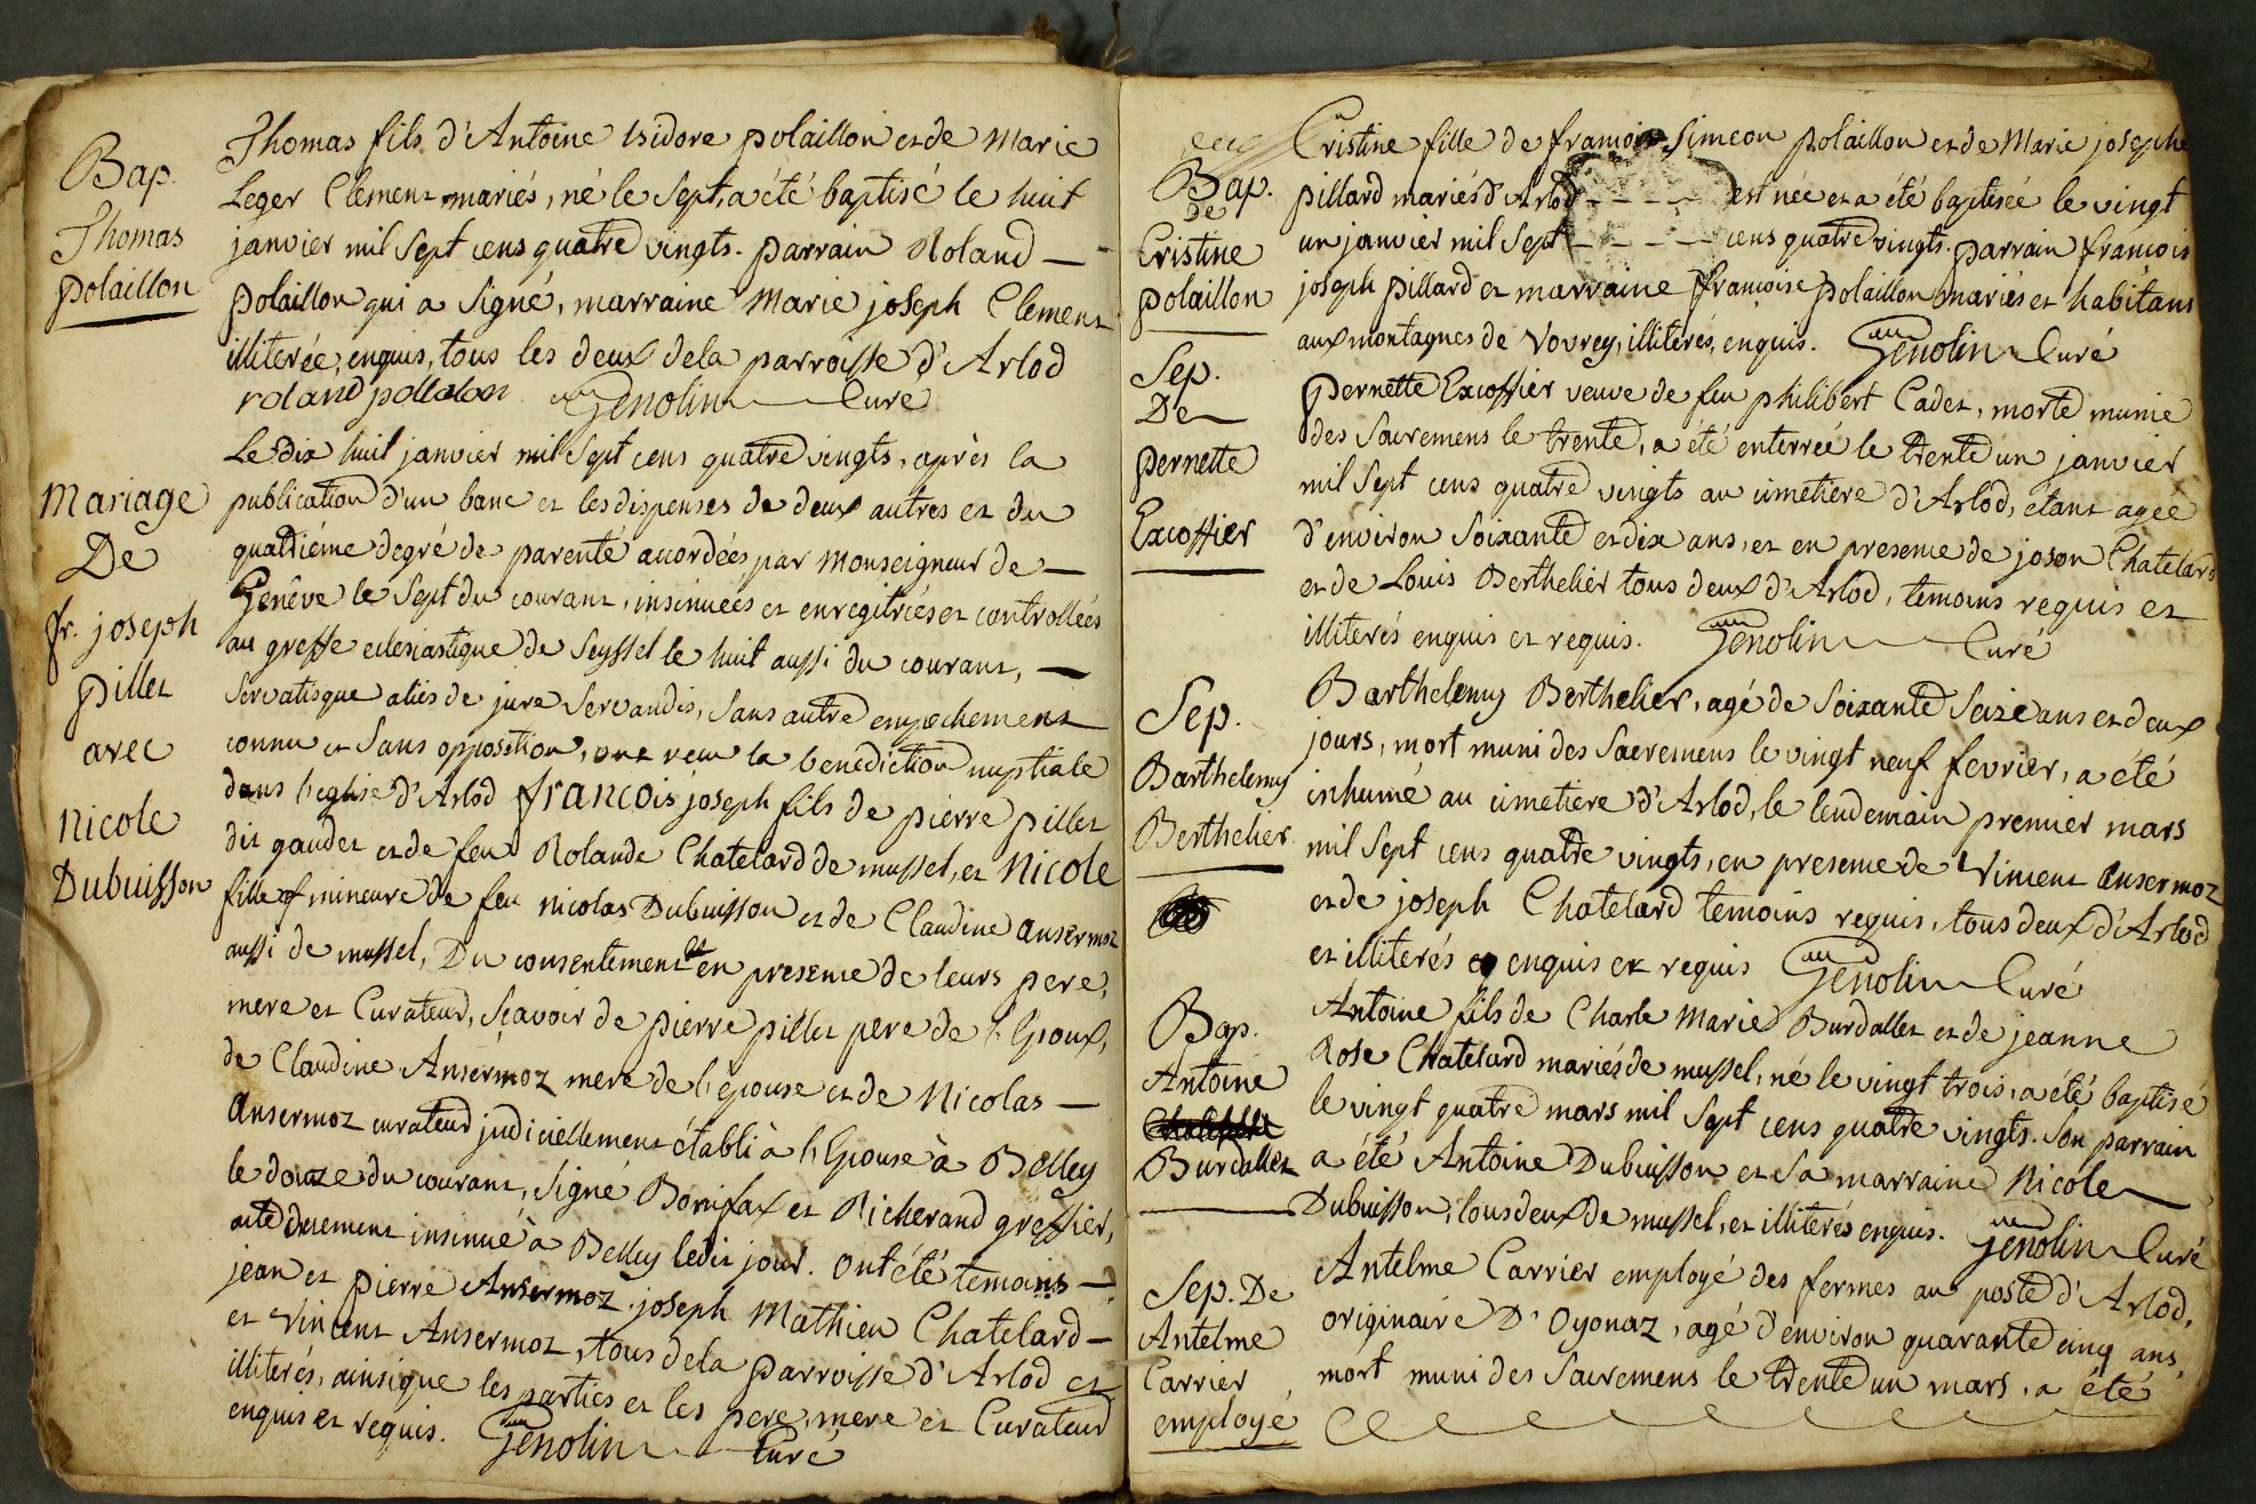 Bap.
Thomas
polaillon
Thomas fils d'Antoine Isidore polaillon et de Marie
Leger Clement mariés, né le sept, a été baptisé le huit
janvier mil sept cens quatre vingts. parrain Roland —
polaillon qui a signé, marraine Marie joseph Clement
illiterée, enquis, tous les deux dela parroisse d'Arlod
roland pollalon Genolin Curé
Mariage
De
fr. joseph
pillet
avec
Nicole
Dubuisson
Le dix huit janvier mil sept cens quatre vingts, après la
publication d'un banc et les dispenses de deux autres et du
quatriéme degré de parenté accordées par Monseigneur de —
Genêve le sept du courant, insinuées et enregitrées et controllées
au greffe eclesiastique de Seyssel le huit aussi du courant, —
servatisque aliis de jure servandis, sans autre empechement
connu et sans opposition, ont reçu la benediction nuptiale
dans l'eglise d'Arlod françois joseph fils de pierre pillet
dit gaudet et de feu Rolande Chatelard de mussel, et Nicole
fille mineure de feu nicolas Dubuisson et de Claudine ansermoz
aussi de mussel, Du consentement et en presence de leurs pere,
mere et Curateur, sçavoir de pierre pillet pere de l'Epoux,
de Claudine Ansermoz mere de l'épouse et de Nicolas —
ansermoz curateur judiciellement établi à l'Epouse à Belley
le douze du courant, signé Bonifax et Richerand greffier,
acte duement insinué à Belley ledit jour. ont été temoins —
jean et pierre Ansermoz, joseph Mathieu Chatelard —
et Vincent Ansermoz, tous dela parroisse d'Arlod et
illiterés, ainsique les parties et les pere, mere et Curateur
enquis et requis. Genolin Curé
Bap.
De
Cristine
polaillon
Cristine fille de francois Simeon polaillon et de Marie josephe
pillard mariés d'Arlod - - - - est née et a été baptisée le vingt
un janvier mil sept - - - - cens quatre vingts. parrain francois
joseph pillard et marraine francoise polaillon mariés et habitans
aux montagnes de Vovrey, illiterés, enquis. Genolin Curé
Sep.
De
pernette
Excoffier
pernette Excoffier veuve de feu philibert Cadet, morte munie
des Sacremens le trente, a été enterrée le trente un janvier
mil sept cens quatre vingts au cimetiere d'Arlod, étant agée
d'environ soixante et dix ans, et en presence de joson Chatelard
et de Louis Berthelier tous deux d'Arlod, temoins requis et
illiterés enquis et requis. Genolin Curé
Sep.
Barthelemy
Berthelier
Barthelemy Berthelier, agé de soixante seize ans et deux
jours, mort muni des Sacremens le vingt neuf fevrier, a été
inhumé au cimetiere d'Arlod, le lendemain premier mars
mil sept cens quatre vingts, en presence de Vincent ansermoz
et de joseph Chatelard temoins requis, tous deux d'Arlod
et illiterés enquis et requis Genolin Curé
Bap.
Antoine
Burdallet
Antoine fils de Charle Marie Burdallet et de jeanne
Rose Chatelard mariés de mussel, né le vingt trois, a été baptisé
le vingt quatre mars mil sept cens quatre vingts. son parrain
a été Antoine Dubuisson et sa marraine Nicole
Dubuisson, tous deux de mussel, et illiterés enquis. Genolin Curé
Sep. De
Antelme
Carrier
employé
Antelme Carrier employé des fermes au poste d'Arlod,
originaire D'Oyonaz, agé d'environ quarante cinq ans,
mort muni des Sacremens le trente un mars, a été